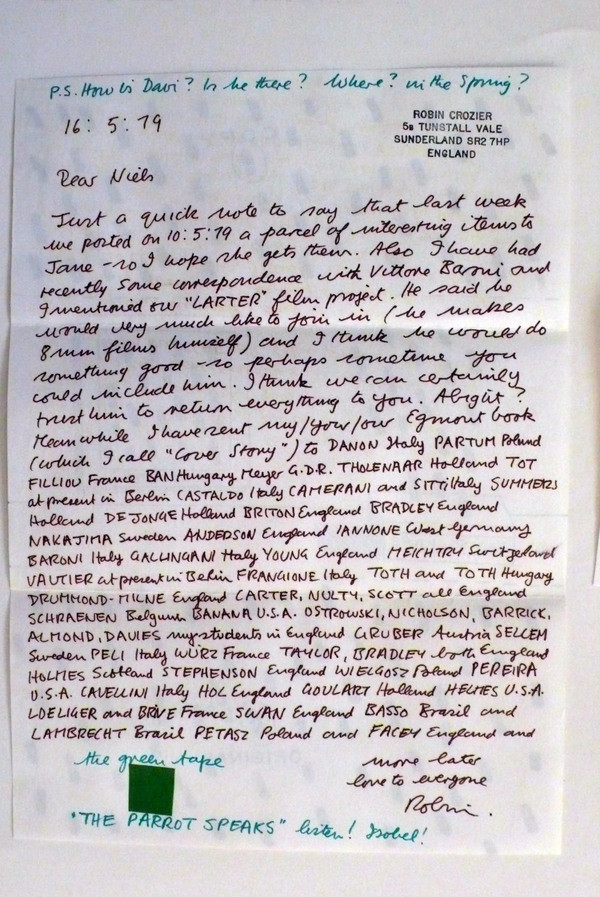 P.S. How is Davi? Is he there? Where? in the Spring?
16: 5: 79
ROBIN CROZIER
5B TUNSTALL VALE
SUNDERLAND SR2 7HP
ENGLAND
Dear Niels
Just a quick note to say that last week
we posted on 10:5:79 a parcel of interesting items to
Jane - so I hope she gets them. Also I have had
recently some correspondence with Vittore Baroni and
I mentioned our "LARTER" film project. He said he
would very much like to join in (he makes
8mm films himself) and I think he would do
something good - so perhaps sometime you
could include him. I think we can certainly
trust him to return everything to you. Alright?
Meanwhile I have sent my/your/our Egmont book
(which I call "Cover Story") to DANON Italy PARTUM Poland
FILLIOU France BAN Hungary Meyer G.D.R. THOLENAAR Holland TOT
at present in Berlin CASTALDO Italy CAMERANI and SITTI Italy SUMMERS
Holland DE JONGE Holland BRITON England BRADLEY England
NAKAJIMA Sweden ANDERSON England IANNONE West Germany
BARONI Italy GALLINGANI Italy YOUNG England MEICHTRY Switzerland
VAUTIER at present in Berlin FRANGIONE Italy TOTH and TOTH Hungary
DRUMMOND-MILNE England CARTER, NULTY, SCOTT all England
SCHRAENEN Belgium BANANA U.S.A. OSTROWSKI, NICHOLSON, BARRICK,
ALMOND, DAVIES my students in England GRUBER Austria SELLEM
Sweden PELI Italy WÜRZ France TAYLOR, BRADLEY both England
HOLMES Scotland STEPHENSON England WIELGOSZ Poland PEREIRA
U.S.A. CAVELLINI Italy HOL England GOULART Holland HELMES U.S.A.
LOELIGER and BRIVE France SWAN England BASSO Brazil and
LAMBRECHT Brazil PETASZ Poland and FACEY England and
the green tape
more later
love to everyone
Robin.
"THE PARROT SPEAKS" listen! Isobel!